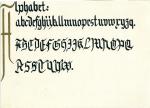 Alphabet:
abcdefghijklmnopqrstuvwxyzq.
ABCDEFGHIJKLMNOPQ
RSTUVW.